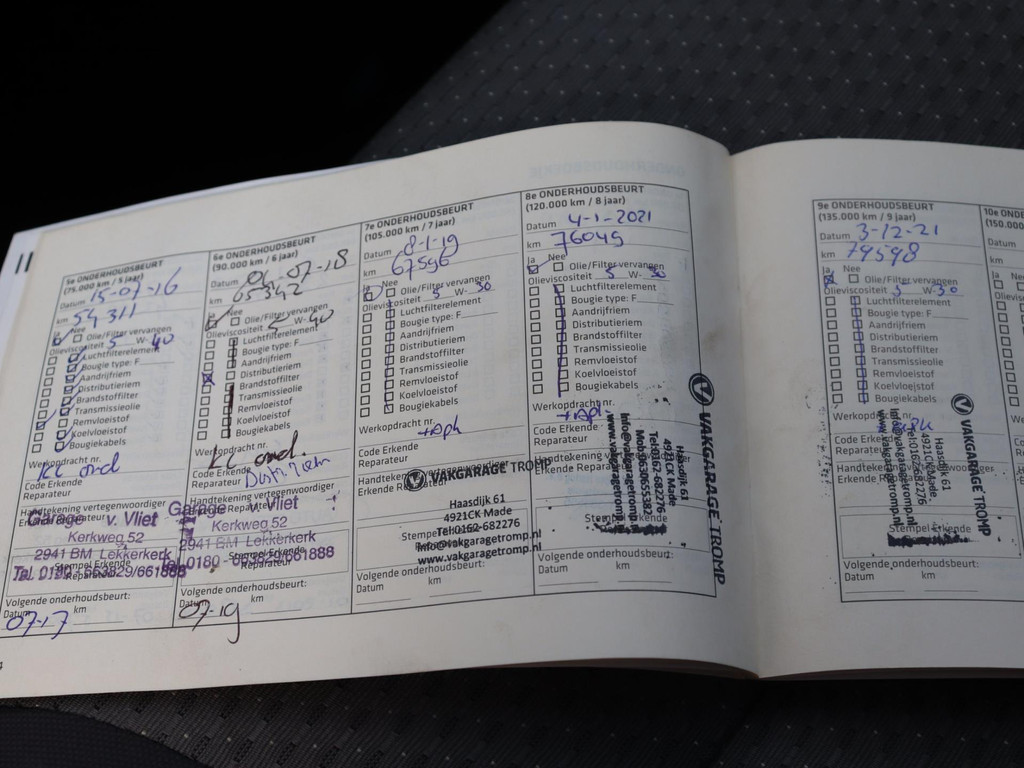 5e ONDERHOUDSBEURT
(75.000 km / 5 jaar)
Datum 15-07-16
km 54311
Ja Nee
Olie/Filter vervangen
Olieviscositeit 5 W-40
Luchtfilterelement
Bougie type: F
Aandrijfriem
Distributieriem
Brandstoffilter
Transmissieolie
Remvloeistof
Koelvloeistof
Bougiekabels
Werkopdracht nr.
Code Erkende
Reparateur
Garage v. Vliet
Kerkweg 52
2941 BM Lekkerkerk
Tel. 0180 - 663829/661888
Stempel Erkende
Reparateur
Volgende onderhoudsbeurt:
Datum km
07-17
6e ONDERHOUDSBEURT
(90.000 km / 6 jaar)
Datum 04-07-18
km 65342
Ja Nee
Olie/Filter vervangen
Olieviscositeit 5 W-40
Luchtfilterelement
Bougie type: F
Aandrijfriem
Distributieriem
Brandstoffilter
Transmissieolie
Remvloeistof
Koelvloeistof
Bougiekabels
Werkopdracht nr.
Code Erkende
Reparateur
Handtekening vertegenwoordiger
Garage v. Vliet
Kerkweg 52
2941 BM Lekkerkerk
Tel. 0180 - 663829/661888
Stempel Erkende
Reparateur
Volgende onderhoudsbeurt:
Datum km
07-19
7e ONDERHOUDSBEURT
(105.000 km / 7 jaar)
Datum 8-1-19
km 67596
Ja Nee
Olie/Filter vervangen
Olieviscositeit 5 W-30
Luchtfilterelement
Bougie type: F
Aandrijfriem
Distributieriem
Brandstoffilter
Transmissieolie
Remvloeistof
Koelvloeistof
Bougiekabels
Werkopdracht nr.
+Apk
Code Erkende
Reparateur
Handtekening vertegenwoordiger
VAKGARAGE TROMP
Haasdijk 61
4921CK Made
Tel:0162-682276
info@vakgaragetromp.nl
www.vakgaragetromp.nl
Volgende onderhoudsbeurt:
Datum km
8e ONDERHOUDSBEURT
(120.000 km / 8 jaar)
Datum 4-1-2021
km 76049
Ja Nee
Olie/Filter vervangen
Olieviscositeit 5 W-30
Luchtfilterelement
Bougie type: F
Aandrijfriem
Distributieriem
Brandstoffilter
Transmissieolie
Remvloeistof
Koelvloeistof
Bougiekabels
Werkopdracht nr.
+Apk
Code Erkende
Reparateur
VAKGARAGE TROMP
Haasdijk 61
4921CK Made
Tel:0162-682276
info@vakgaragetromp.nl
www.vakgaragetromp.nl
Stempel Erkende
Volgende onderhoudsbeurt:
Datum km
9e ONDERHOUDSBEURT
(135.000 km / 9 jaar)
Datum 3-12-21
km 79598
Ja Nee
Olie/Filter vervangen
Olieviscositeit 5 W-30
Luchtfilterelement
Bougie type: F
Aandrijfriem
Distributieriem
Brandstoffilter
Transmissieolie
Remvloeistof
Koelvloeistof
Bougiekabels
Werkopdracht nr.
Code Erkende
Reparateur
VAKGARAGE TROMP
Haasdijk 61
4921CK Made
Tel:0162-682276
info@vakgaragetromp.nl
www.vakgaragetromp.nl
Stempel Erkende
Volgende onderhoudsbeurt:
Datum km
10e
(150.000
Datum
km
Ja